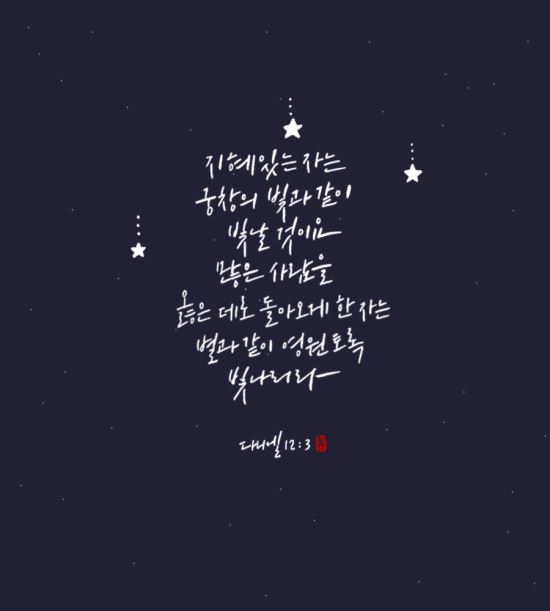 지혜있는 자는
궁창의 빛과 같이
빛날 것이요
많은 사람을
옳은 데로 돌아오게 한 자는
별과 같이 영원토록
빛나리라
다니엘 12:3